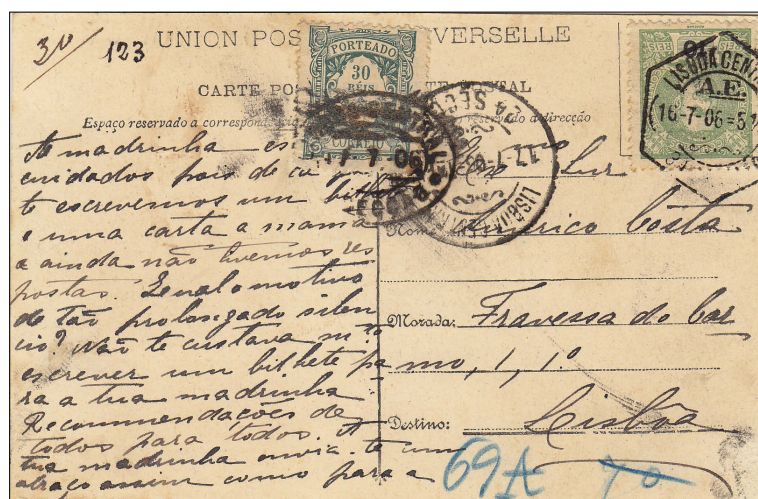 3º/ 123
UNION POS VERSELLE
CARTE POS TE TAL
Espaço reservado a correspond reservado a direcção
PORTEADO
30
RÉIS
CORREIO
RÉIS
LISBOA CENTRAL
A.E.
16-7-06=5
17-7-06
LISBOA
2ª SECÇÃO
A madrinha es
cuidados pois de ca
te escrevemos um bilh
e uma carta a mamã
e ainda não tivemos res
postas. Qual o motivo
de tão prolongado silen
cio? Não te custava mto
escrever um bilhete pa
ra a tua madrinha
Recommendações de
todos para todos. A
tua madrinha envia-te um
abraço assim como para a
Snr
Nome: Americo Costa
Morada: Travessa do Car
mo, 1, 1º
Destino: Lisboa
69A